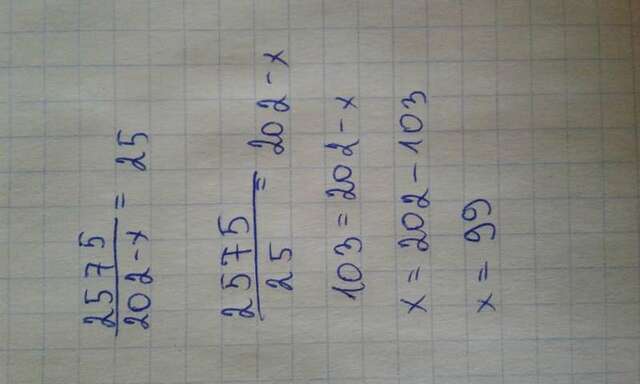 2575
202-x = 25
2575
25 = 202-x
103 = 202-x
x = 202-103
x = 99